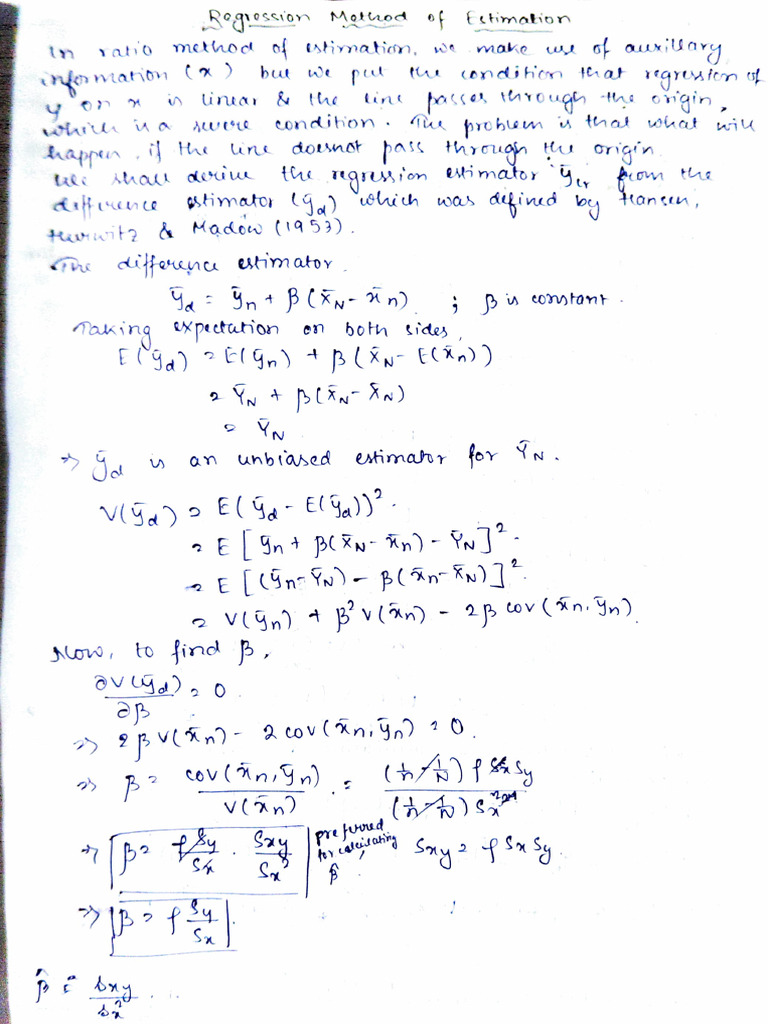 Regression Method of Estimation
In ratio method of estimation, we make use of auxillary
information (x) but we put the condition that regression of
y on x is linear & the line passes through the origin,
which is a severe condition. The problem is that what will
happen, if the line doesnot pass through the origin.
We shall derive the regression estimator ȳlr from the
difference estimator (ȳd) which was defined by Hansen,
Hurwitz & Madow (1953).
The difference estimator
ȳd = ȳn + β(X̄N - x̄n) ; β is constant.
Taking expectation on both sides,
E(ȳd) = E(ȳn) + β(X̄N - E(x̄n))
= ȲN + β(X̄N - X̄N)
= ȲN
⇒ ȳd is an unbiased estimator for ȲN.
V(ȳd) = E(ȳd - E(ȳd))².
= E[ȳn + β(X̄N - x̄n) - ȲN]².
= E[(ȳn - ȲN) - β(x̄n - X̄N)]².
= V(ȳn) + β² V(x̄n) - 2β cov(x̄n, ȳn).
Now, to find β,
∂V(ȳd)/∂β = 0
⇒ 2βV(x̄n) - 2 cov(x̄n, ȳn) = 0.
⇒ β = cov(x̄n, ȳn)/V(x̄n) = (1/n - 1/N) ρ Sx Sy / (1/n - 1/N) Sx²
⇒ β = ρ Sy/Sx . Sxy/Sx² preferred for calculating β̂, Sxy = ρ Sx Sy.
⇒ β = ρ Sy/Sx.
β̂ = sxy/sx² ...